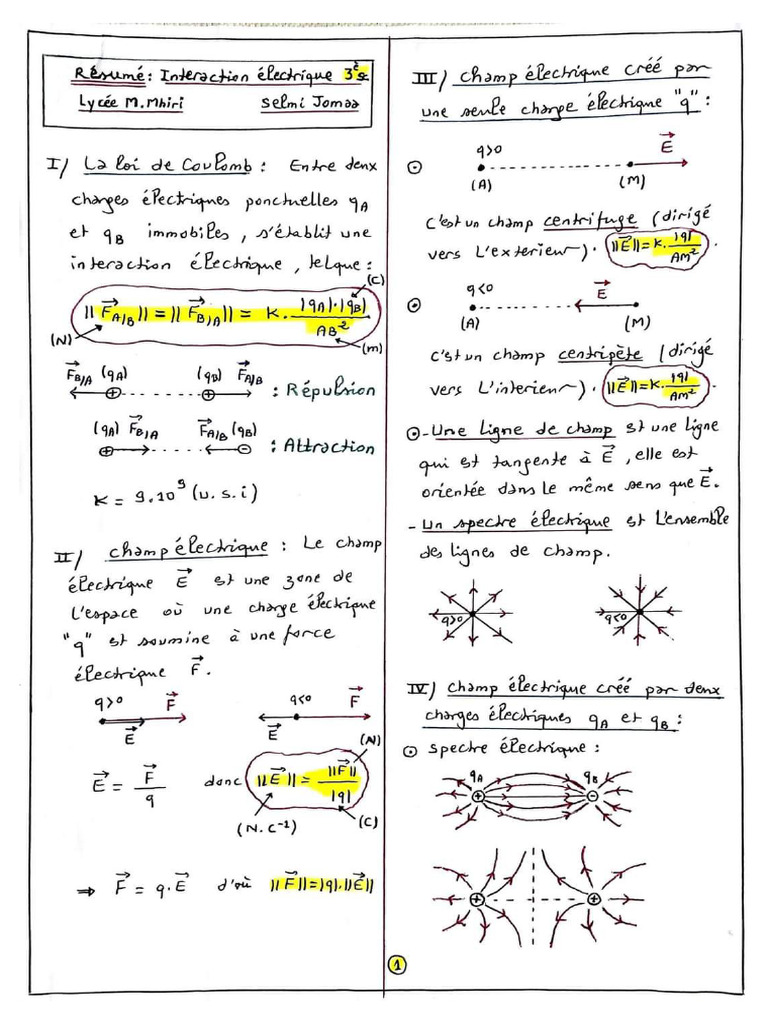 Résumé: Interaction électrique 3è Sc
Lycée M.Mhiri Selmi Jomaa
I/ La loi de Coulomb : Entre deux
charges électriques ponctuelles qA
et qB immobiles, s'établit une
interaction électrique, telque :
(C)
||F⃗A/B|| = ||F⃗B/A|| = K . |qA|.|qB| / AB²
(N)
(m)
F⃗B/A (qA) (qB) F⃗A/B
+ + : Répulsion
(qA) F⃗B/A F⃗A/B (qB)
+ - : Attraction
K = 9.10⁹ (u.s.i)
II/ champ électrique : Le champ
électrique E⃗ est une zone de
l'espace où une charge électrique
"q" est soumine à une force
électrique F⃗.
q>0 F⃗ q<0 F⃗
E⃗ E⃗
(N)
E⃗ = F⃗ / q donc ||E⃗|| = ||F⃗|| / |q|
(N.C⁻¹) (C)
⇒ F⃗ = q.E⃗ d'où ||F⃗||=|q|.||E⃗||
III/ champ électrique créé par
une seule charge électrique "q" :
q>0 E⃗
(A) (M)
C'est un champ centrifuge (dirigé
vers L'exterieur). ||E⃗||=K.|q| / AM² .
q<0 E⃗
(A) (M)
C'est un champ centripète (dirigé
vers L'interieur). ||E⃗||=K.|q| / AM²
- Une ligne de champ est une ligne
qui est tangente à E⃗, elle est
orientée dans le même sens que E⃗.
- Un spectre électrique est L'ensemble
des lignes de champ.
q>0 q<0
IV) champ électrique créé par deux
charges électriques qA et qB :
spectre électrique :
qA qB
+ -
+ +
1